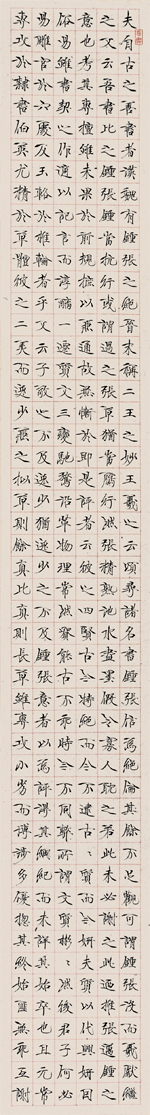 夫自古之善書者漢魏有鍾張之絕晉末稱二王之妙王羲之云頃尋諸名書鍾張信為絕倫其餘不足觀可謂鍾張沒而羲獻繼
之又云吾書比之鍾張鍾當抗行或謂過之張草猶當雁行然張精熟池水盡墨假令寡人耽之若此未必謝之此乃推張邁鍾之
意也考其專擅雖未果於前規摭以兼通故無慚於即事評者云彼之四賢古今特絕而今不逮古々質而今妍夫質以代興妍因
俗易雖書契之作適以記言而淳醨一遷質文三變馳騖沿革物理常然貴能古不乖時今不同弊所謂文質彬々然後君子何必
易雕宮於穴處反玉輅於椎輪者乎又云子敬之不及逸少猶逸少之不及鍾張意者以為評得其綱紀而未詳其始卒也且元常
專攻於隸書伯英尤精於草體彼之二美而逸少兼之擬草則餘真比真則長草雖專攻小劣而博涉多優揔其終始匪無乖互謝